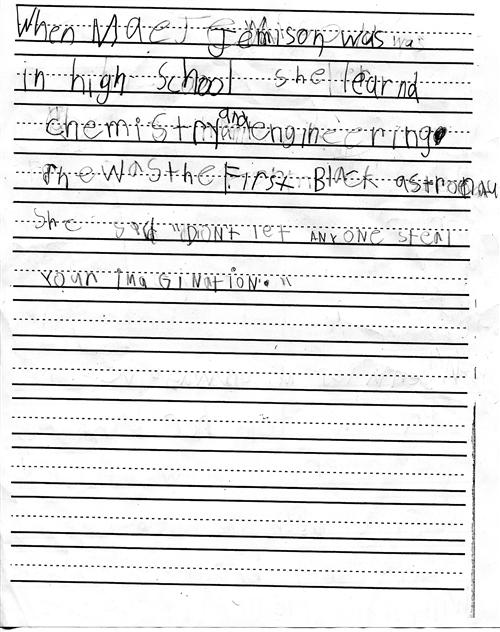 When Mae Jemison was
in high school she learnd
chemistry and engineering.
She was the First Black astronau
She sad "DONT let ANYONE steal
your imaGiNatioN."